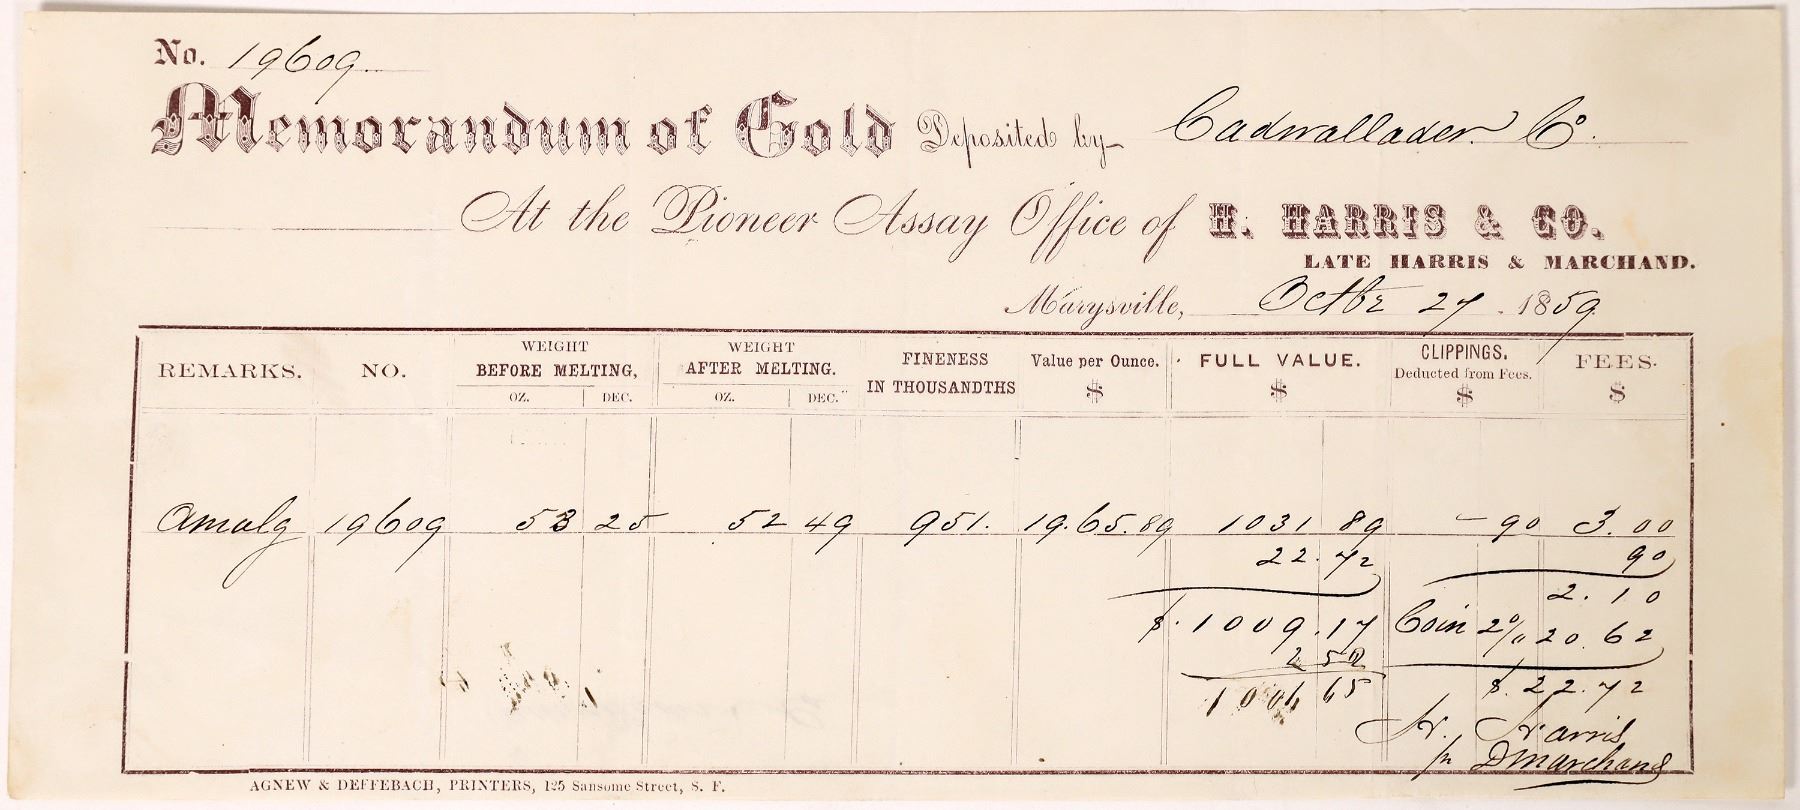 No. 19609
Memorandum of Gold Deposited by Cadwallader Co.
At the Pioneer Assay Office of H. HARRIS & CO.
LATE HARRIS & MARCHAND.
Marysville, Octbr 27. 1859
REMARKS. NO. WEIGHT BEFORE MELTING, OZ. DEC. WEIGHT AFTER MELTING. OZ. DEC. FINENESS IN THOUSANDTHS Value per Ounce. $ FULL VALUE. $ CLIPPINGS. Deducted from Fees. $ FEES. $
Amalg 19609 53 25 52 49 951. 19.65.89 1031 89 - 90 3.00
22.72 90
2.10
$.1009.17 Coin 2% 20.62
2 52
1006 65 $.22.72
H. Harris
pr DMarchand
AGNEW & DEFFEBACH, PRINTERS, 125 Sansome Street, S. F.